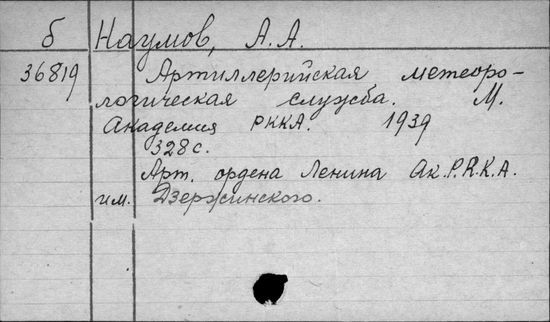 б Наумов, А.А.
36819 Артиллерийская метеоро-
логическая служба. М.
Академия РККА. 1939
328 с.
Арт. ордена Ленина Ак.Р.К.К.А.
им. Дзержинского.